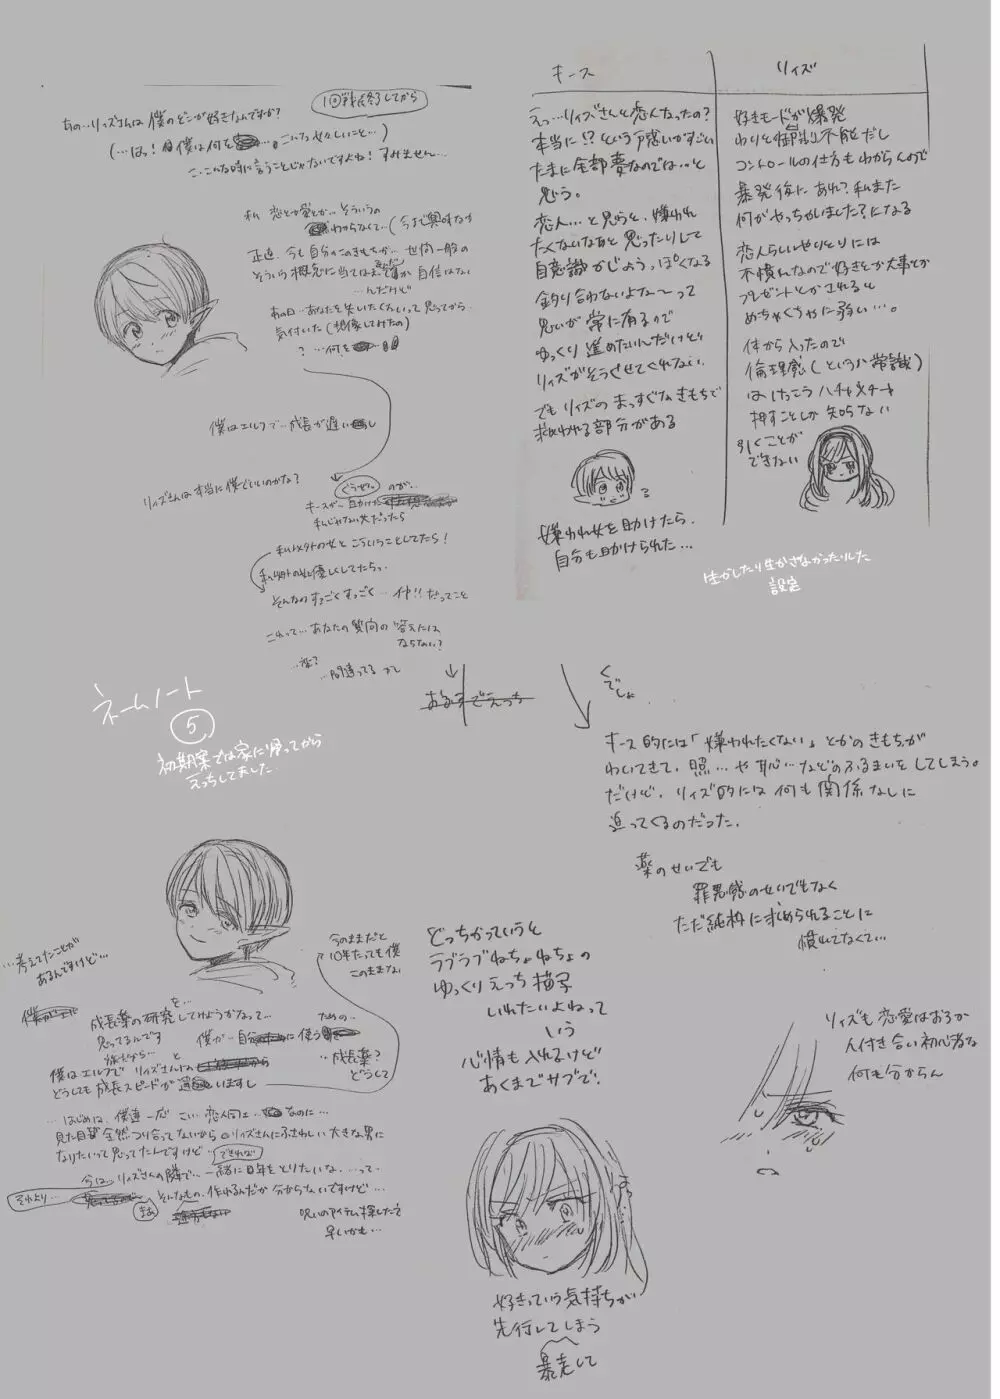 1回戦終了してから
あの…リィズさんは僕のどこが好きなんですか?
(…はっ! 僕は何を…。こんな女々しいこと…)
こ、こんな時に言うことじゃないですよね! すみません…
私 恋とか愛とか…そういうの
わからなくて…(今まで興味なか
正直、今も自分のこのきもちが… 世間一般の
そういう概念に当てはまるか 自信はない
…んだけど
あの日…あなたを失いたくないって思ってから
気付いた(想像してみたの)
?…何を
僕はエルフで…成長が遅いし
リィズさんは本当に僕でいいのかな?
ぐうぜん のが…
キースが 助けた
私じゃない女だったら
私以外の女とこういうことしてたら!
私以外の女に優しくしてたらっ
そんなのすっごくすっごく…イヤ!!だってこと
これって…あなたの質問の 答えには
ならない?
…変?
…間違ってる かし
キース
えっ…リィズさんと恋人なったの?
本当に!? という戸惑いがすごい
たまに全部夢なのでは…と
思う。
恋人…と思うと、嫌われ
たくないなあと思ったりして
自意識かじょうっぽくなる
釣り合わないよな〜って
思いが常に有るので
ゆっくり進めたいんだけど
リィズがそうさせてくれない。
でもリィズのまっすぐなきもちで
救われる部分がある
嫌われ女を助けたら、
自分も助けられた…
リィズ
好きモードが爆発
わりと制御不能だし
コントロールの仕方もわからんので
暴発後にあれ?私また
何かやっちゃいました?になる
恋人らしいやりとりには
不慣れなので好きとか大事とか
プレゼントとかされると
めちゃくちゃに弱い…。
体から入ったので
倫理感(というか常識)
はけっこうハチャメチャ
押すことしか知らない
引くことが
できない
生かしたり生かさなかったりした
設定
ネームノート
5
初期案では家に帰ってから
えっちしてました
おるすでえっち
くでしょ
キース的には「嫌われたくない」とかのきもちが
わいてきて、照…や恥…などのふるまいをしてしまう。
だけど、リィズ的には何も関係なしに
迫ってくるのだった。
薬のせいでも
罪悪感のせいでもなく
ただ純粋に求められることに
慣れてなくて…
どっちかっていうと
ラブラブねちょねちょの
ゆっくりえっち描写
いれたいよねって
いう
心情も入れるけど
あくまでサブで。
リィズも恋愛はおろか
人付き合い初心者な
何も分からん
…考えてたことが
あるんですけど…
今のままだと
10年たっても僕
このままな
を…
成長薬の研究してみようかなって…
思ってるんです
僕が 自分に使うための…
…成長薬?
どうして
僕はエルフで リィズさんと
どうしても成長スピードが違いますし
…はじめは、僕達一応 こい 恋人同士…なのに…
見た目が全然つり合ってないから。リィズさんにふさわしい大きな男に
なりたいって思ってたんですけど…できれば
今は…リィズさんの隣で…一緒に年をとりたいな、…って、
それより…
まあ
そんなもの、作れるんだか 分からないですけど…
呪いのアイテム探した方
早いかも…
好きっていう気持ちが
先行してしまう
暴走して